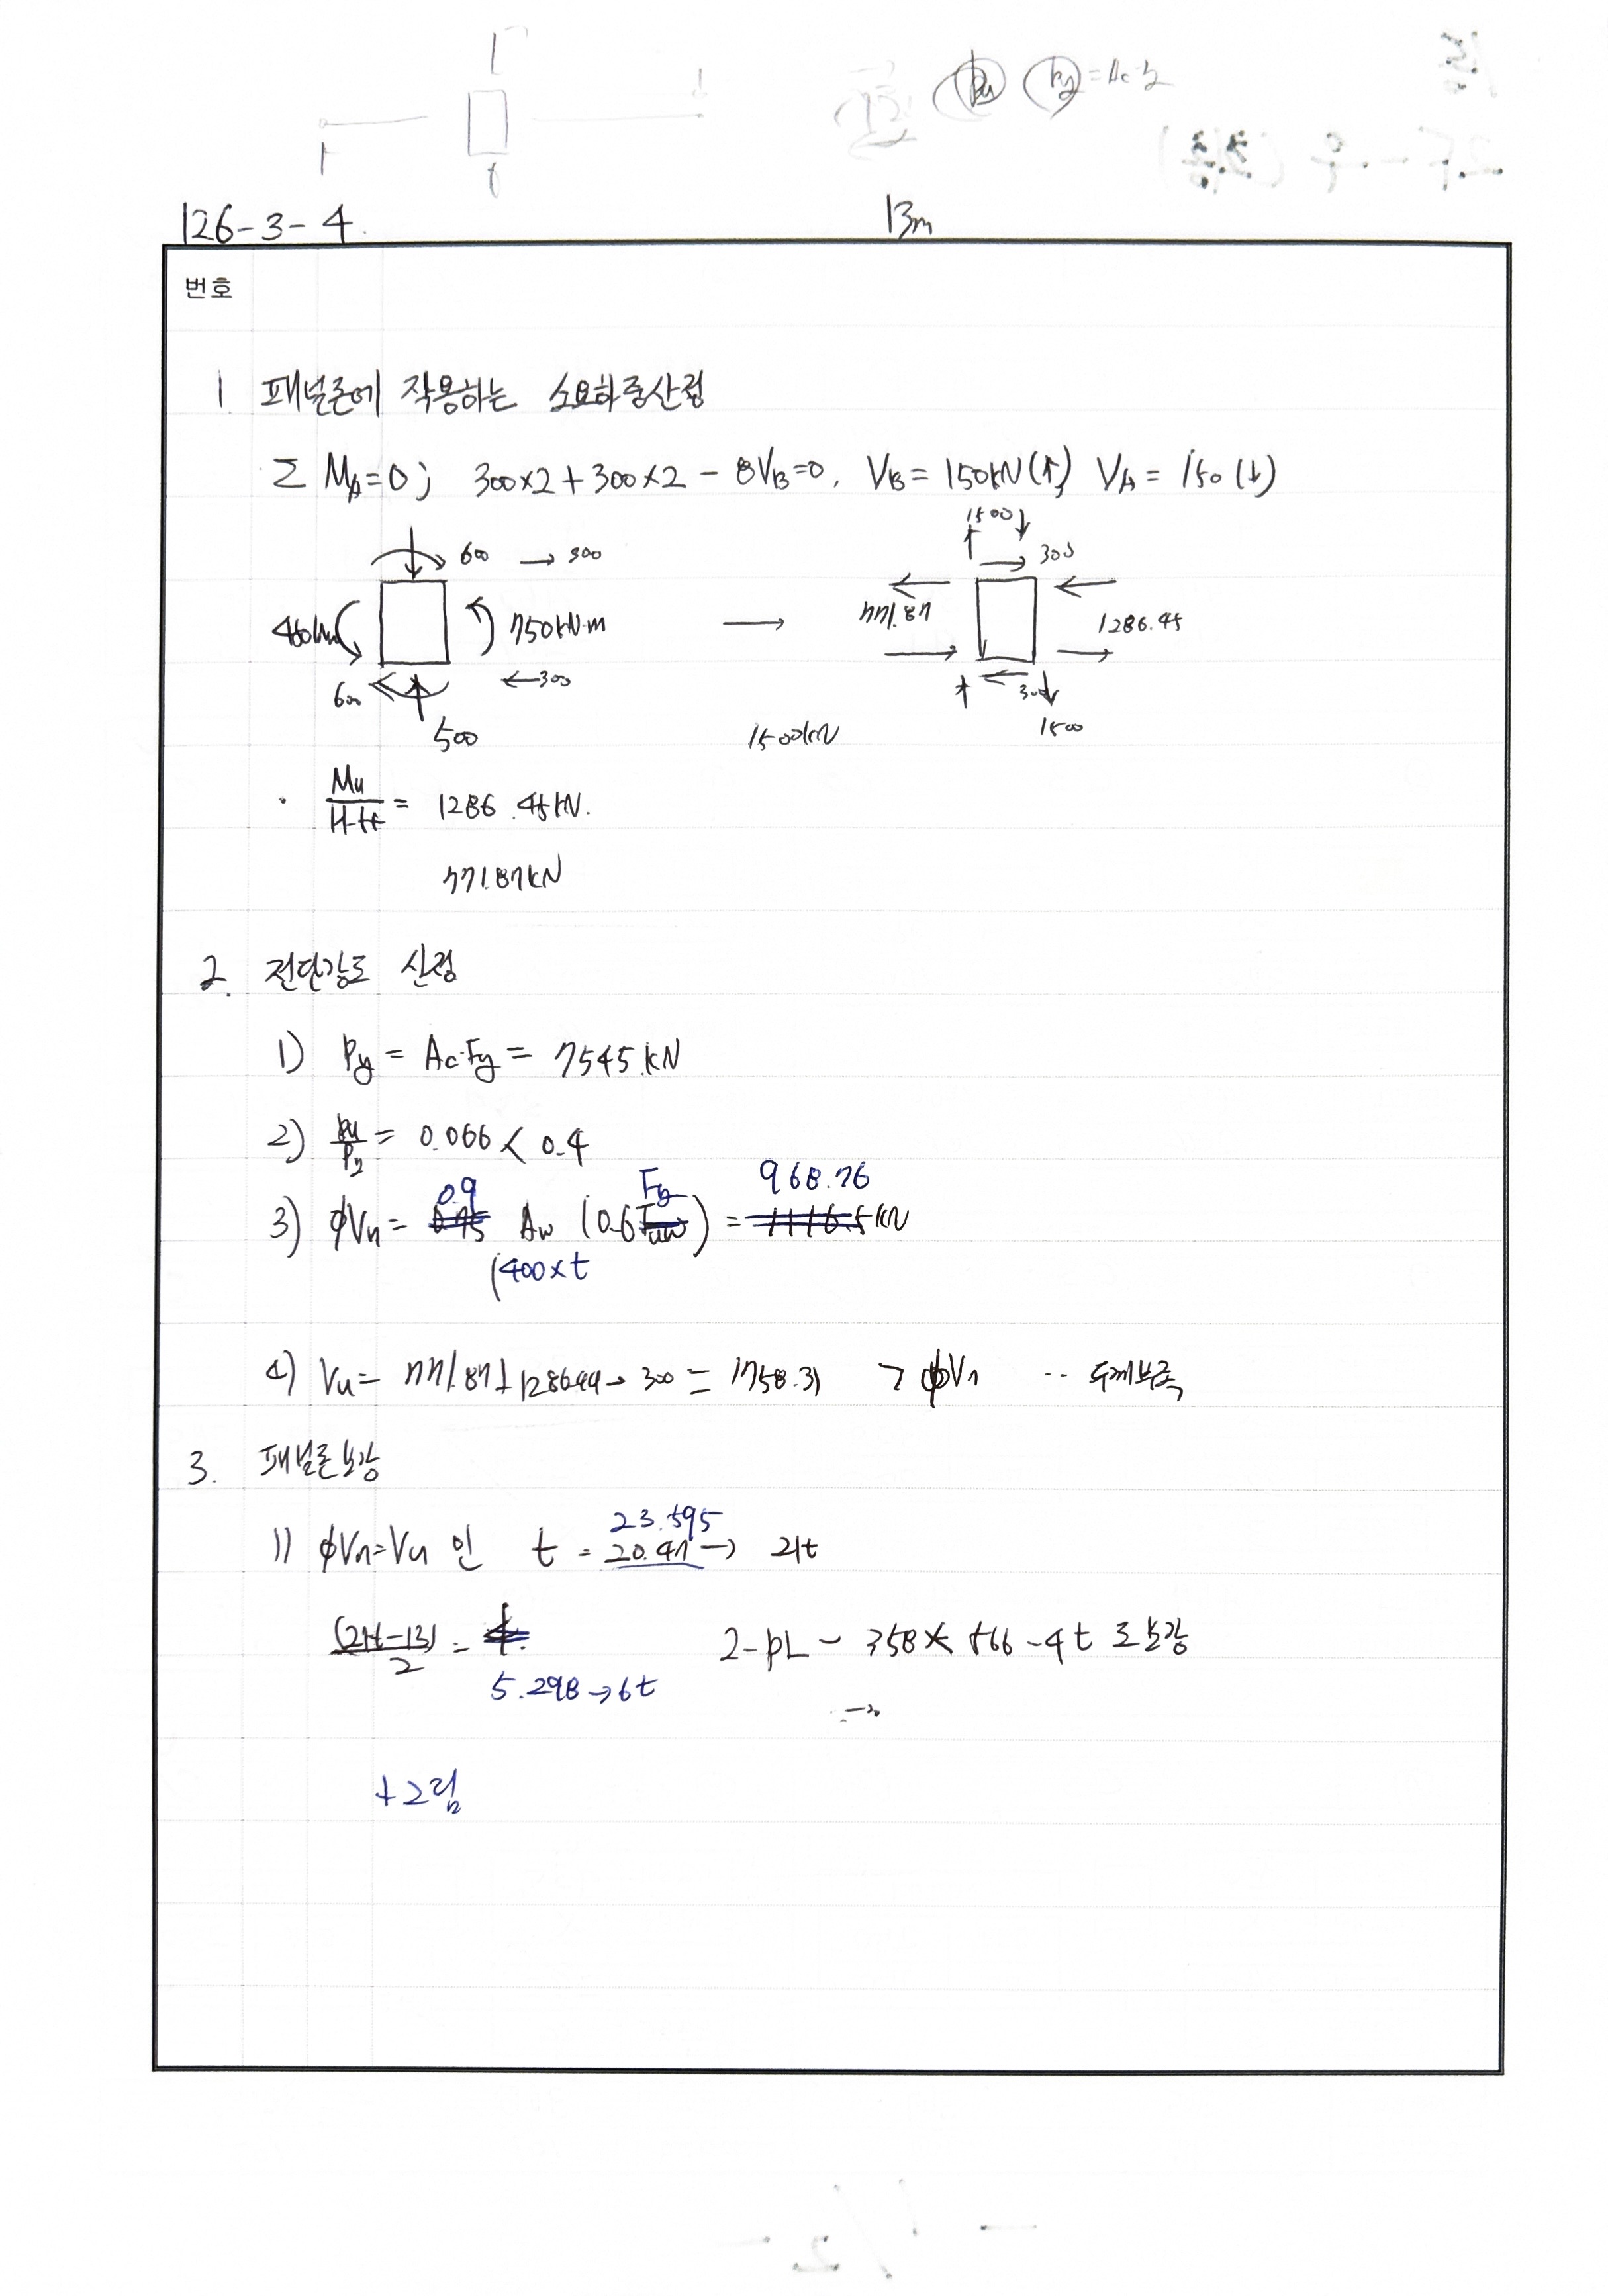 Pu Py = Ac·Fy
126-3-4.
13m
번호
1 패널존에 작용하는 소요하중산정
Σ MA=0; 300×2+300×2 - 8VB=0, VB = 150kN(↑) VA = 150 (↓)
600 → 300
450kNm
750kN·m
600
← 300
500
→
1500
300
771.87
1286.45
300
1500
1500kN
· Mu/H-tf = 1286.45kN.
771.87kN
2. 전단강도 산정
1) Py = Ac·Fy = 7545.kN
2) Pu/Py = 0.066 < 0.4
0.9 Fy 968.76
3) φVn = 0.75 Aw (0.6Fuw) = 1116.5kN
(400×t
4) Vu = 771.87+1286.44-300 = 1758.31 > φVn ·· 두께부족
3. 패널존보강
23.595
1) φVn=Vu 인 t = 20.47 → 21t
(21t-13)/2 = 4. 2-PL - 358 × 566 - 4t 로 보강
5.298→6t
+2림